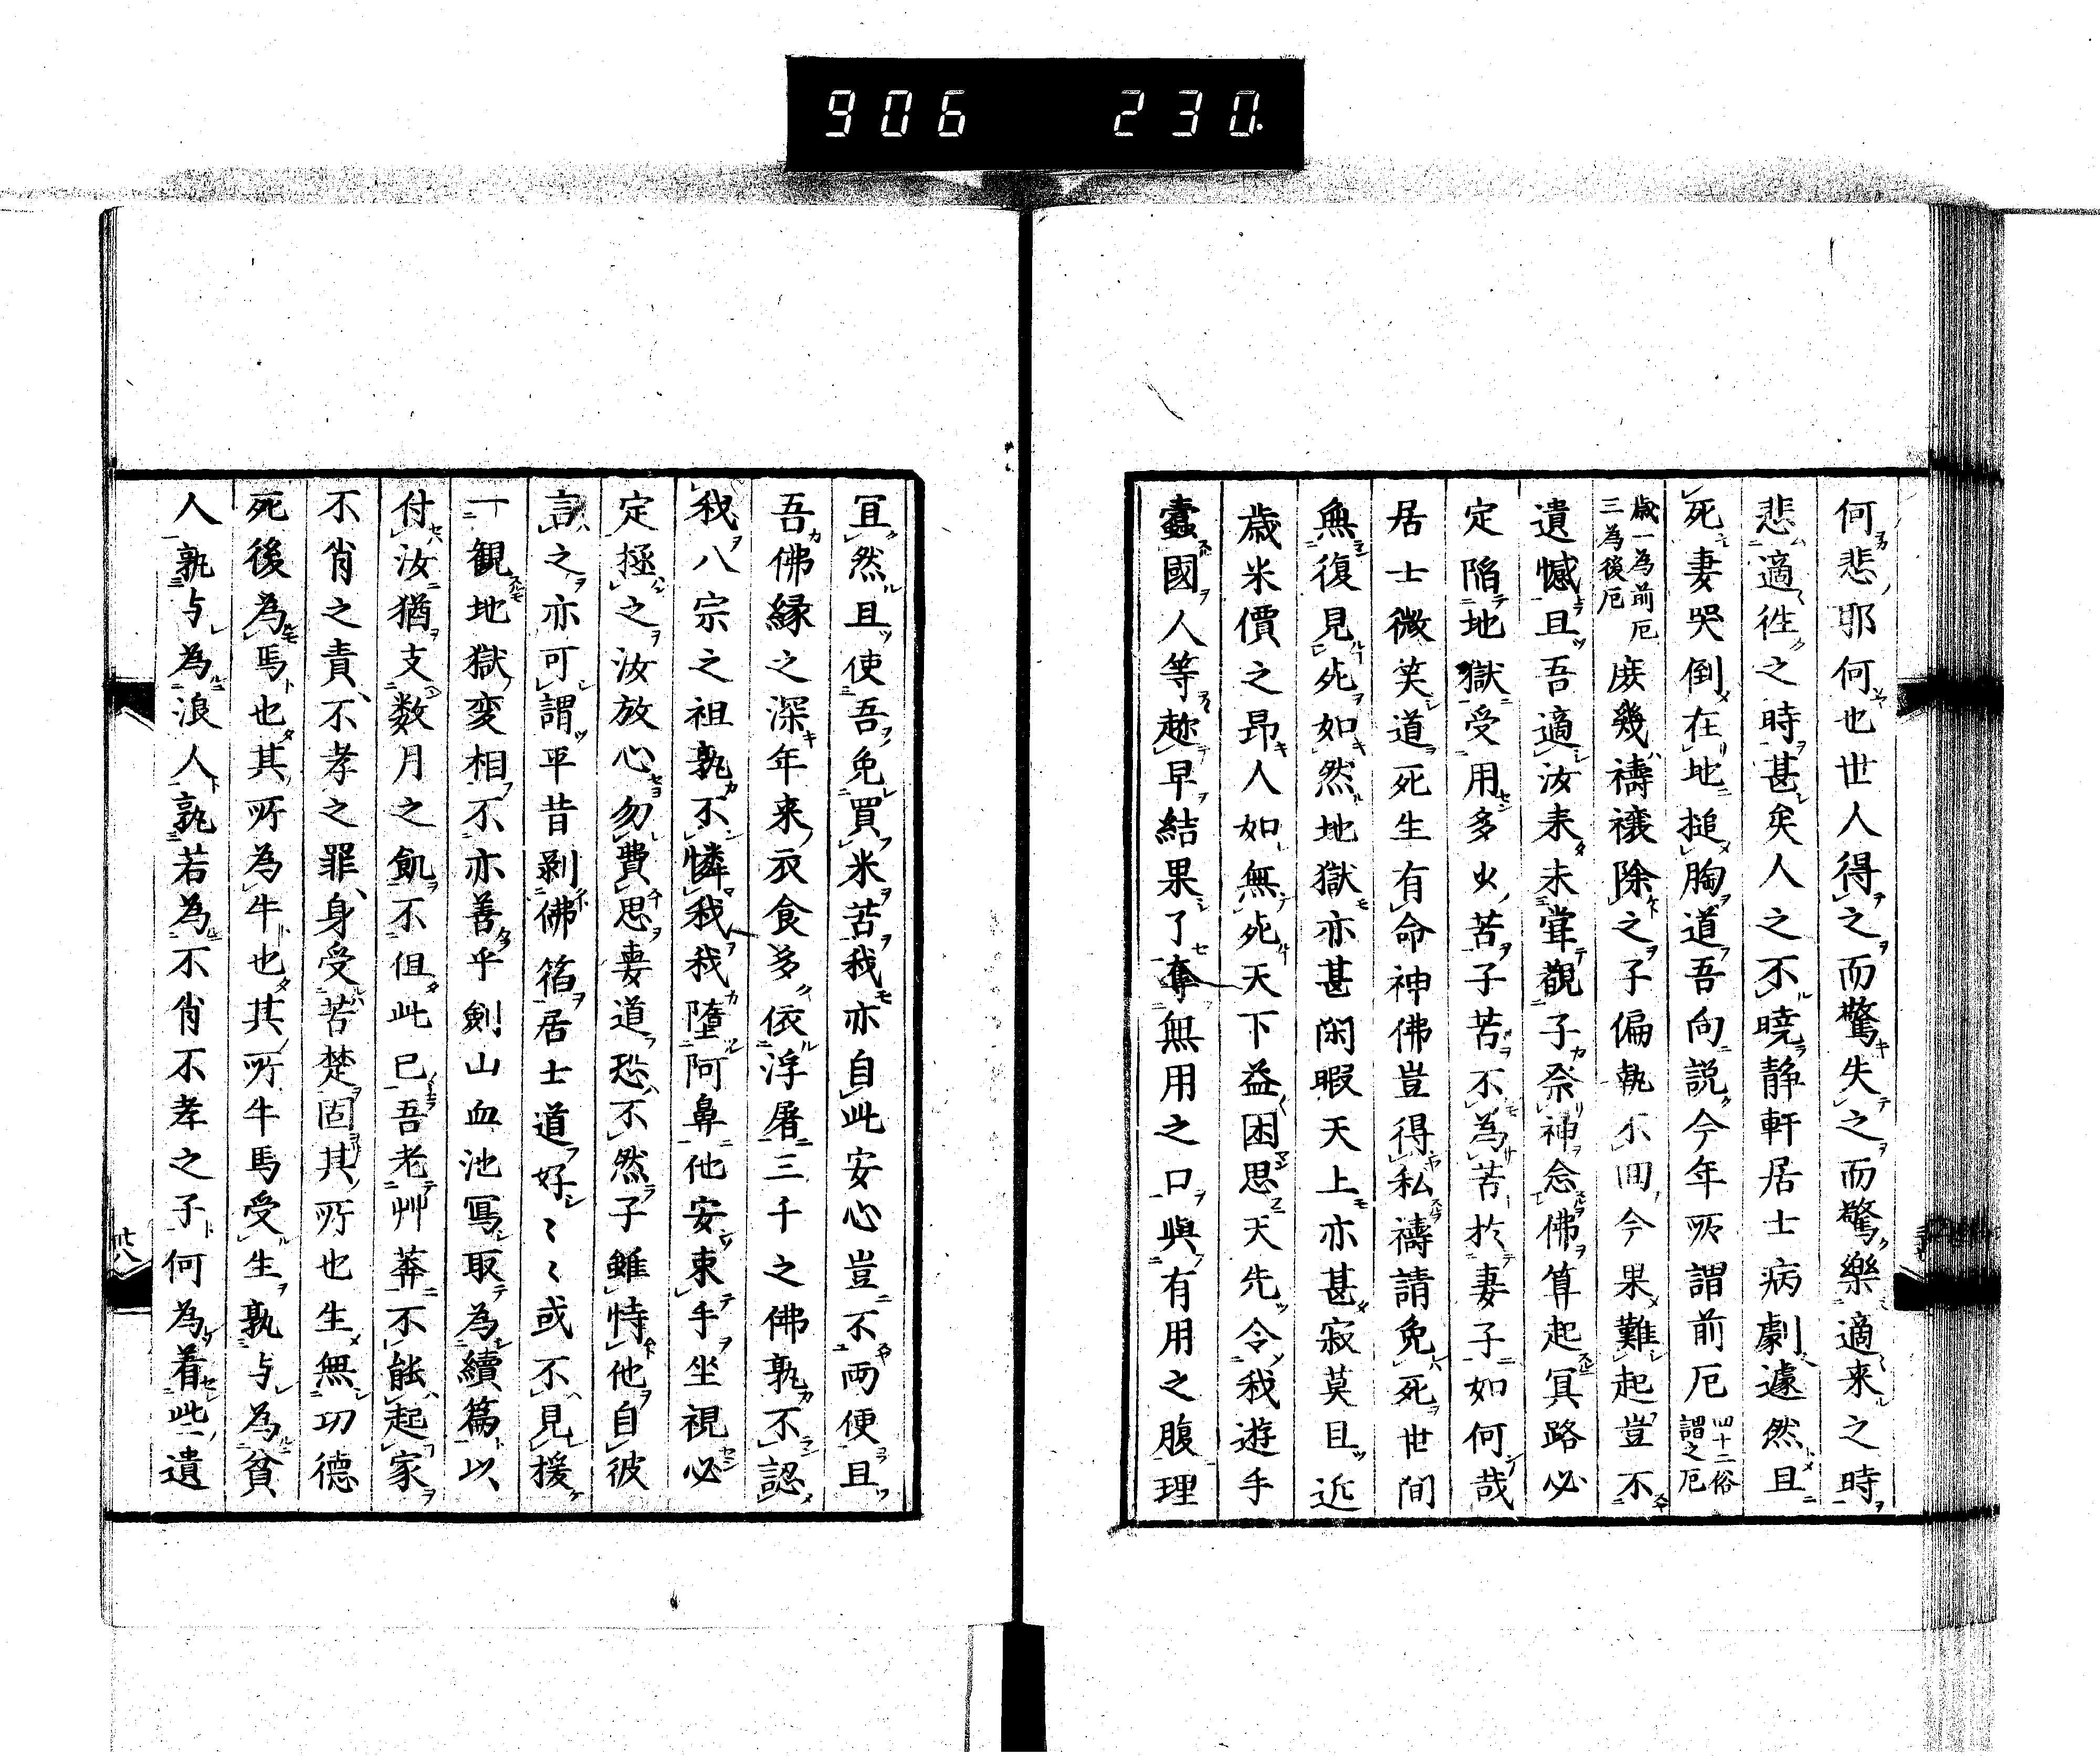 906 230.
何悲耶何也世人得之而驚失之而驚樂適来之時
悲適徃之時甚矣人之不暁静軒居士病劇遽然且
死妻哭倒在地搥胸道吾向説今年所謂前厄四十二俗謂之厄
歳一為前厄三為後厄庻幾禱禳除之子偏執不囘今果難起豈不
遺憾且吾適汝来未甞觀子祭神念佛算起冥路必
定陥地獄受用多少苦子苦不為苦於妻子如何哉
居士微笑道死生有命神佛豈得私禱請免死世間
無復見死如然地獄亦甚閑暇天上亦甚寂莫且近
歳米價之昂人如無死天下益困思天先令我遊手
蠹國人等趂早結果了奪無用之口與有用之腹理
冝然且使吾免買米苦我亦自此安心豈不両便且
吾佛縁之深年来衣食多依浮屠三千之佛孰不認
我八宗之祖孰不憐我我墮阿鼻他安束手坐視必
定拯之汝放心勿費思妻道恐不然子雖恃他自彼
言之亦可謂平昔剥佛箔居士道好〻〻或不見援
一観地獄変相不亦善乎劍山血池冩取為續篇以
付汝猶支数月之飢不但此已吾老艸莽不能起家
不肖之責不孝之罪身受苦楚固其所也生無功德
死後為馬也其所為牛也其所牛馬受生孰与為貧
人孰与為浪人孰若為不肖不孝之子何為着些遺
廿八